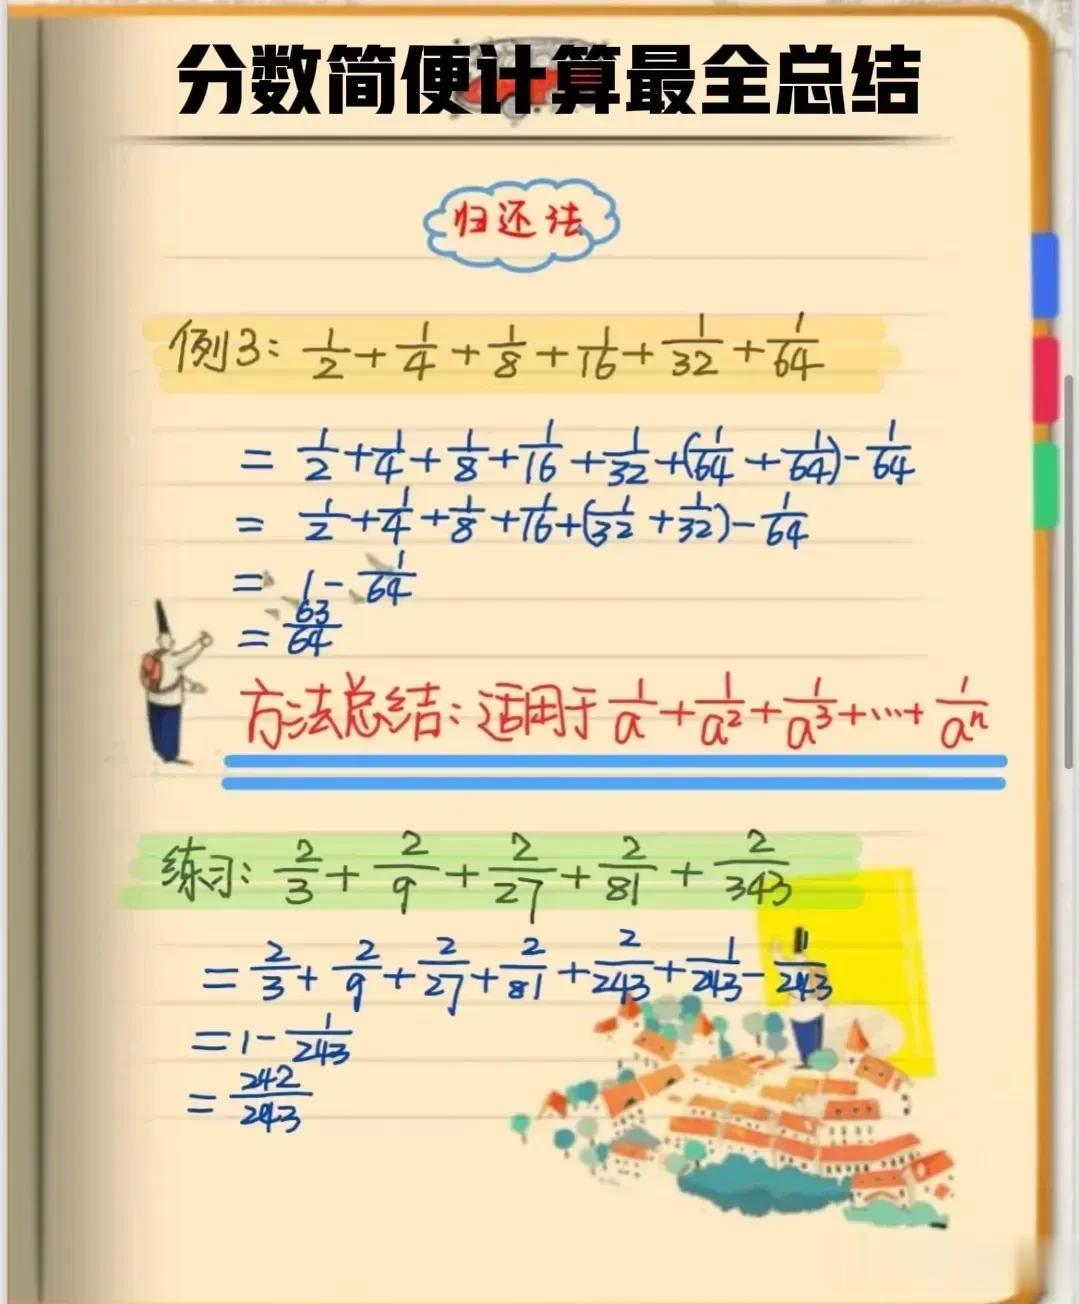 分数简便计算最全总结
归还法
例3: 1/2 + 1/4 + 1/8 + 1/16 + 1/32 + 1/64
= 1/2 + 1/4 + 1/8 + 1/16 + 1/32 + (1/64 + 1/64) - 1/64
= 1/2 + 1/4 + 1/8 + 1/16 + (1/32 + 1/32) - 1/64
= 1 - 1/64
= 63/64
方法总结: 适用于 1/a + 1/a² + 1/a³ + … + 1/aⁿ
练习: 2/3 + 2/9 + 2/27 + 2/81 + 2/343
= 2/3 + 2/9 + 2/27 + 2/81 + 2/243 + 1/243 - 1/243
= 1 - 1/243
= 242/243